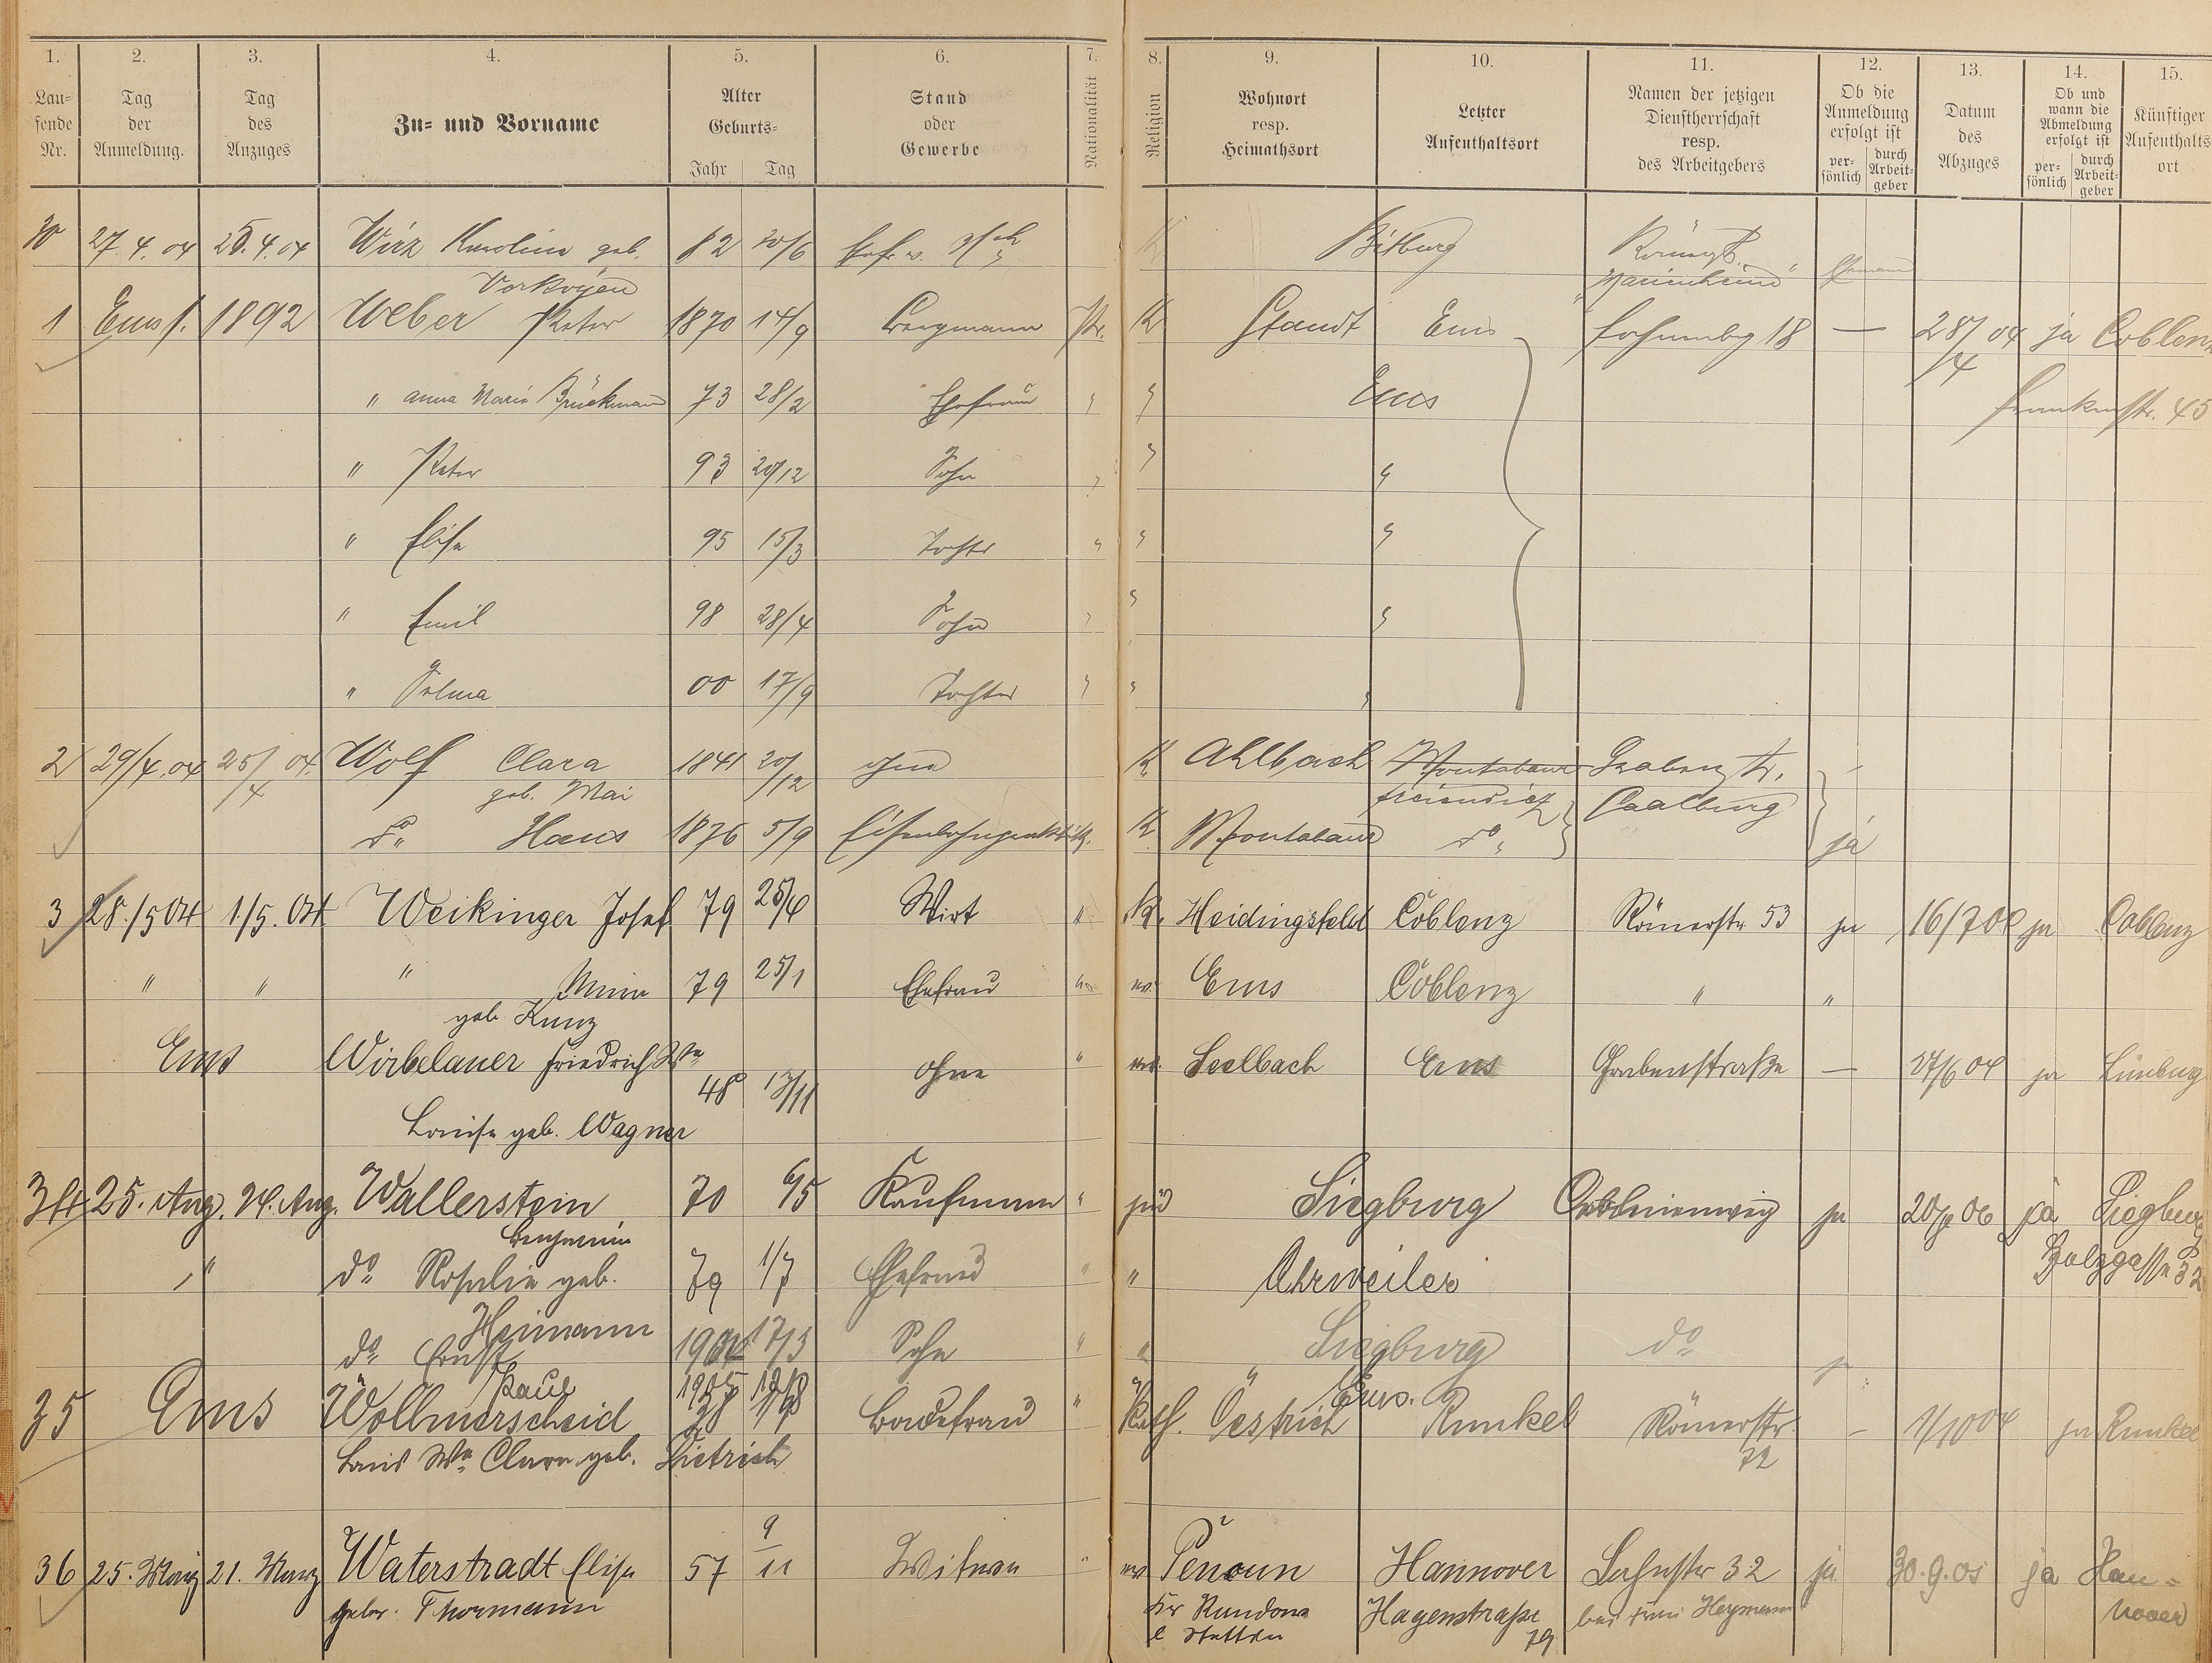 1. 2. 3. 4. 5. 6. 7. 8. 9. 10. 11. 12. 13. 14. 15.
Lau-
fende
Nr.
Tag
der
Anmeldung.
Tag
des
Anzuges
Zu- und Vorname
Alter
Geburts-
Jahr Tag
Stand
oder
Gewerbe
Nationalität
Religion
Wohnort
resp.
Heimathsort
Letzter
Aufenthaltsort
Namen der jetzigen
Dienstherrschaft
resp.
des Arbeitgebers
Ob die
Anmeldung
erfolgt ist
per-
sönlich
durch
Arbeit-
geber
Datum
des
Abzuges
Ob und
wann die
Abmeldung
erfolgt ist
per-
sönlich
durch
Arbeit-
geber
Künftiger
Aufenthalts
ort
27.4.04 25.4.04 Wirz Karoline geb. 82 20/6 K Bitburg
Vorkoÿen "Marienheim" Ehemann
1 Ems 1892 Weber Peter 1870 14/9 Bergmann Pr. K Staudt Ems 18 — 28/4 04 ja Coblenz
" Anna Maria Brückmann 73 28/2 Ehefrau " " Ems Frankenstr. 45
" Peter 93 20/12 Sohn " " "
" Elise 95 15/3 Tochter " " "
" Emil 98 28/4 Sohn " " "
" Selma 00 17/9 Tochter " " "
2 29/4.04 25/4 04. Wolf Clara 1841 20/12 ohne K Ahlbach Montabaur Grabenstr.
geb. Mai Freiendiez
do. Hans 1876 5/9 K Montabaur do. ja
3 28./5 04 1/5. 04 Weikinger Josef 79 25/4 Wirt " K. Heidingsfeld Coblenz Römerstr. 53 ja 16/7 04 ja Coblenz
" " " Minna 79 25/1 Ehefrau " ev. Ems Coblenz " "
geb. Kunz
Ems Wirbelauer Friedrich Ww 48 13/11 ohne " ev. Seelbach Ems Grabenstraße — 27/6 04 ja Limburg
Louise geb. Wagner
34 25. Aug. 24. Aug. Wallerstein 70 6/5 Kaufmann " jüd Siegburg ja 20/ 06 ja Siegburg
Benjamin Holzgasse 32
" do. Rosalie geb. 79 1/7 Ehefrau " " Ahrweiler
Heimann
do. Ernst 1904 17/3 Sohn " " Siegburg do.
Paul 1905 " " Ems.
35 Ems Wollmerscheid 38 Badefrau " Kath. Oestrich Runkel Römerstr. 72 – 1/10 04 ja Runkel
Louis Ww. Clara geb. Dietrich
36 25. März 21. März Waterstradt Elise 57 9/11 Witwe " ev Pencun Hannover Lahnstr. 32 ja 30.9.05 ja Han=
gebor. Thormann Kr Randow Hagenstraße bei Frau Heymann nover
Stettin 79